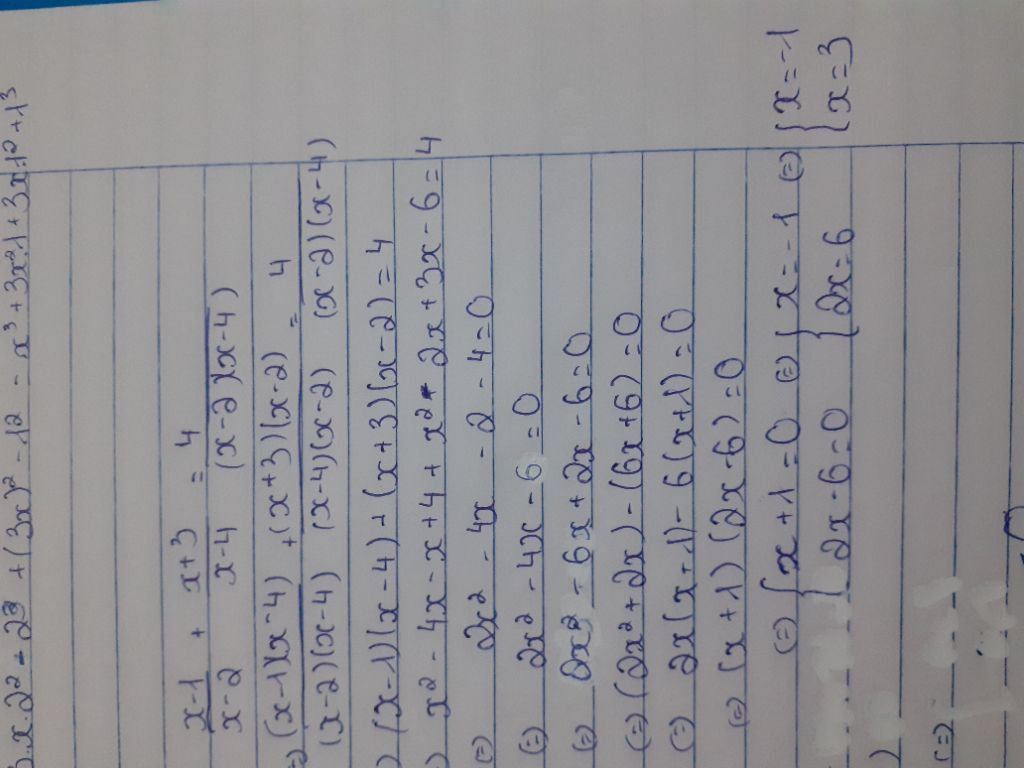 x-2² + 2³ + (3x)² - 12 - x³ + 3x²1 + 3x.1² + 1³
x-1 / x-2 + x+3 / x-4 = 4 / (x-2)(x-4)
(x-1)(x-4) / (x-2)(x-4) + (x+3)(x-2) / (x-4)(x-2) = 4 / (x-2)(x-4)
(x-1)(x-4) + (x+3)(x-2) = 4
x² - 4x - x + 4 + x² - 2x + 3x - 6 = 4
(=) 2x² - 4x - 2 - 4 = 0
(=) 2x² - 4x - 6 = 0
(=) 2x² - 6x + 2x - 6 = 0
(=) (2x² + 2x) - (6x + 6) = 0
(=) 2x(x+1) - 6(x+1) = 0
(=) (x+1)(2x-6) = 0
(=) { x+1=0 (=) { x=-1 (=) { x=-1
{ 2x-6=0 { 2x=6 { x=3
)
(=)